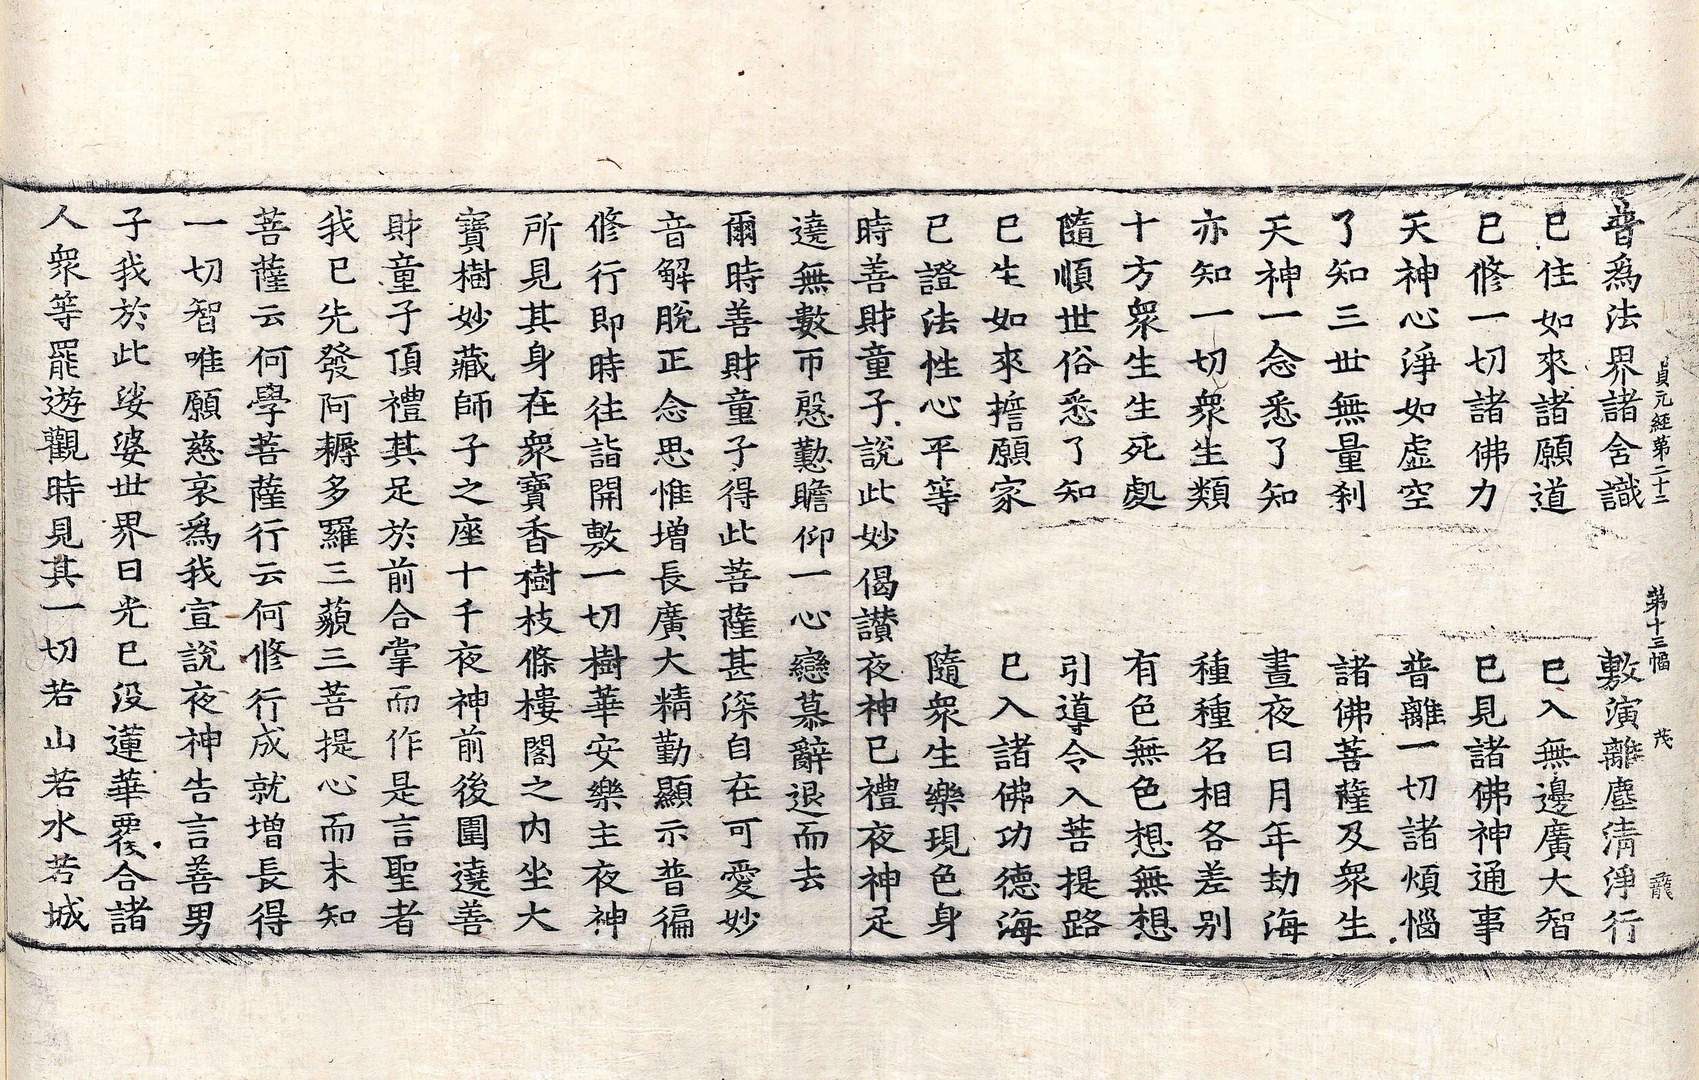 貞元經第二十二　第十三幅　茂　龍
普爲法界諸含識　敷演離塵清淨行
已住如來諸願道　已入無邊廣大智
已修一切諸佛力　已見諸佛神通事
天神心淨如虛空　普離一切諸煩惱
了知三世無量刹　諸佛菩薩及衆生
天神一念悉了知　晝夜日月年劫海
亦知一切衆生類　種種名相各差别
十方衆生生死處　有色無色想無想
隨順世俗悉了知　引導令入菩提路
已生如來擔願家　已入諸佛功德海
已證法性心平等　隨衆生樂現色身
時善財童子說此妙偈讃夜神已禮夜神足
遶無數帀慇懃瞻仰一心戀慕辭退而去
爾時善財童子得此菩薩甚深自在可愛妙
音解脫正念思惟增長廣大精勤顯示普徧
修行即時往詣開敷一切樹華安樂主夜神
所見其身在衆寶香樹枝條樓閣之内坐大
寶樹妙藏師子之座十千夜神前後圍遶善
財童子頂禮其足於前合掌而作是言聖者
我已先發阿耨多羅三藐三菩提心而未知
菩薩云何學菩薩行云何修行成就增長得
一切智唯願慈哀爲我宣說夜神告言善男
子我於此娑婆世界日光已没蓮華覆合諸
人衆等罷遊觀時見其一切若山若水若城